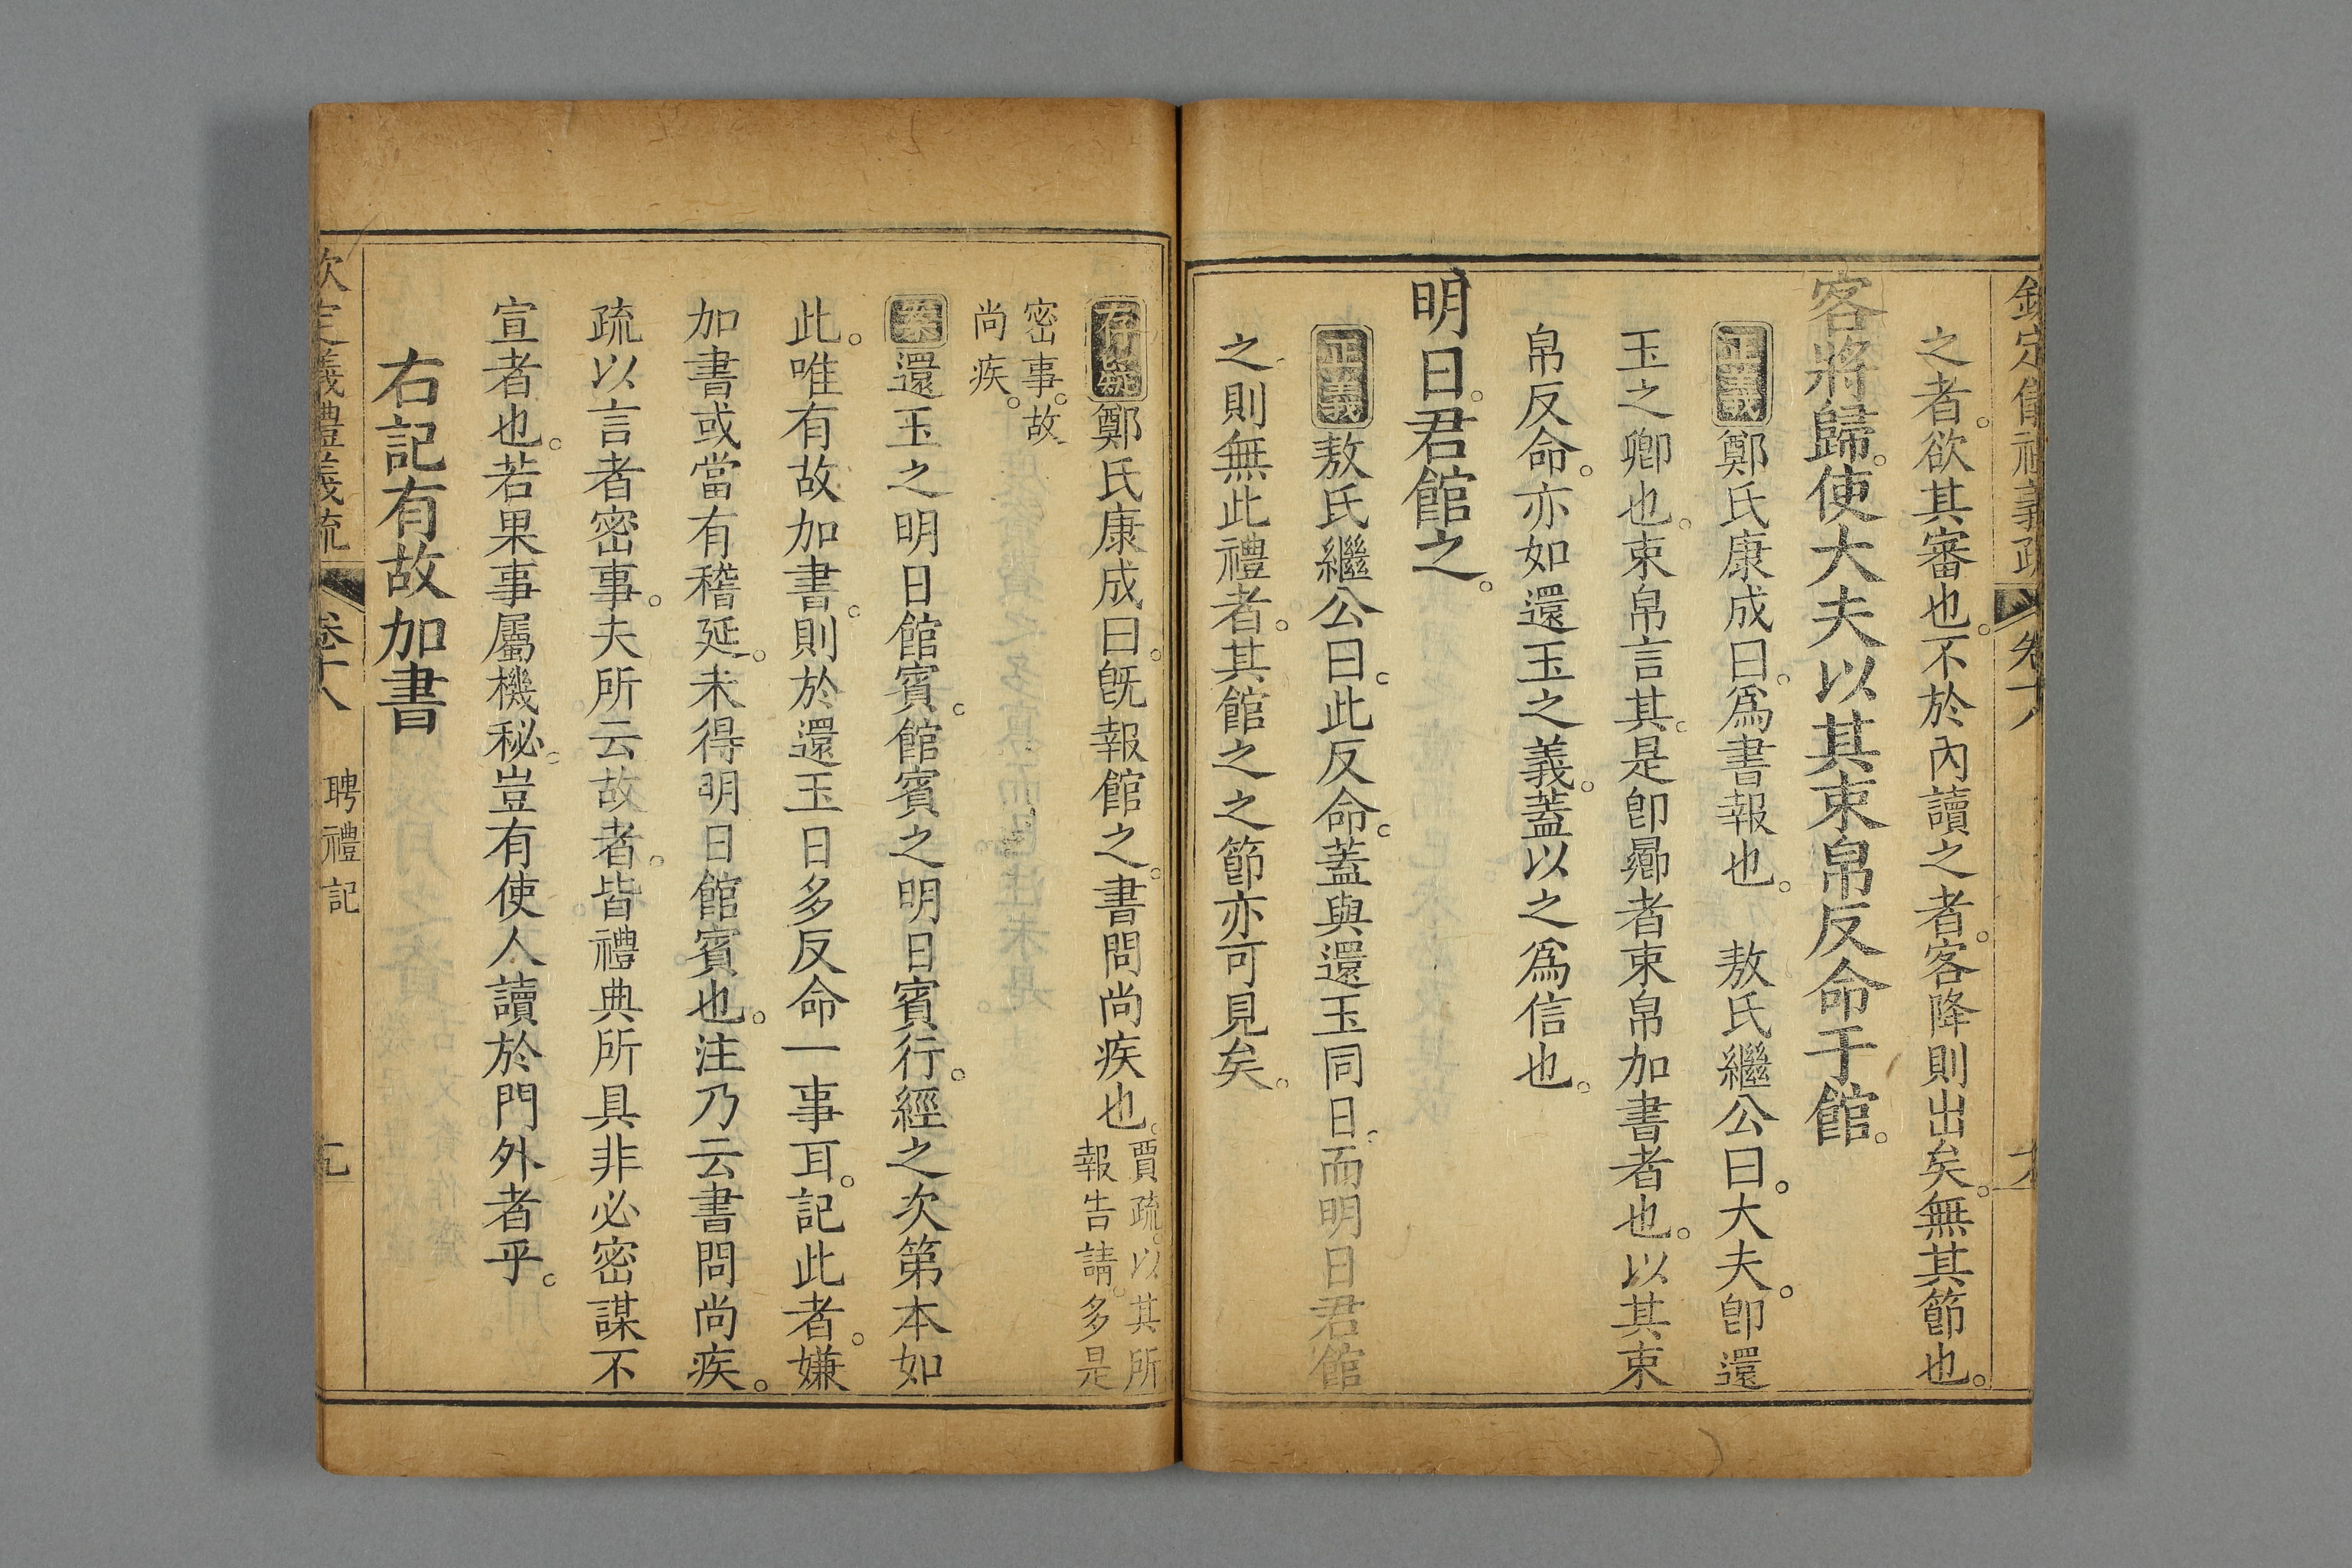 之者。欲其審也。不於內讀之者。客降則出矣。無其節也。
客將歸。使大夫以其束帛反命于館。
正義鄭氏康成曰。爲書報也。　敖氏繼公曰。大夫。卽還
玉之卿也。束帛言其。是卽曏者束帛加書者也。以其束
帛反命。亦如還玉之義。蓋以之爲信也。
明日。君館之。
正義敖氏繼公曰。此反命。蓋與還玉同日。而明日君館
之。則無此禮者。其館之之節亦可見矣。
存疑鄭氏康成曰。旣報館之。書問尚疾也。賈疏。以其所
報告請。多是
密事。故
尚疾。
案還玉之明日館賓。館賓之明日賓行。經之次第本如
此。唯有故加書。則於還玉日多反命一事耳。記此者。嫌
加書或當有稽延。未得明日館賓也。注乃云書問尚疾。
疏以言者密事。夫所云故者。皆禮典所具非必密謀不
宣者也。若果事屬機秘。豈有使人讀於門外者乎。
右記有故加書
卷十八
聘禮記